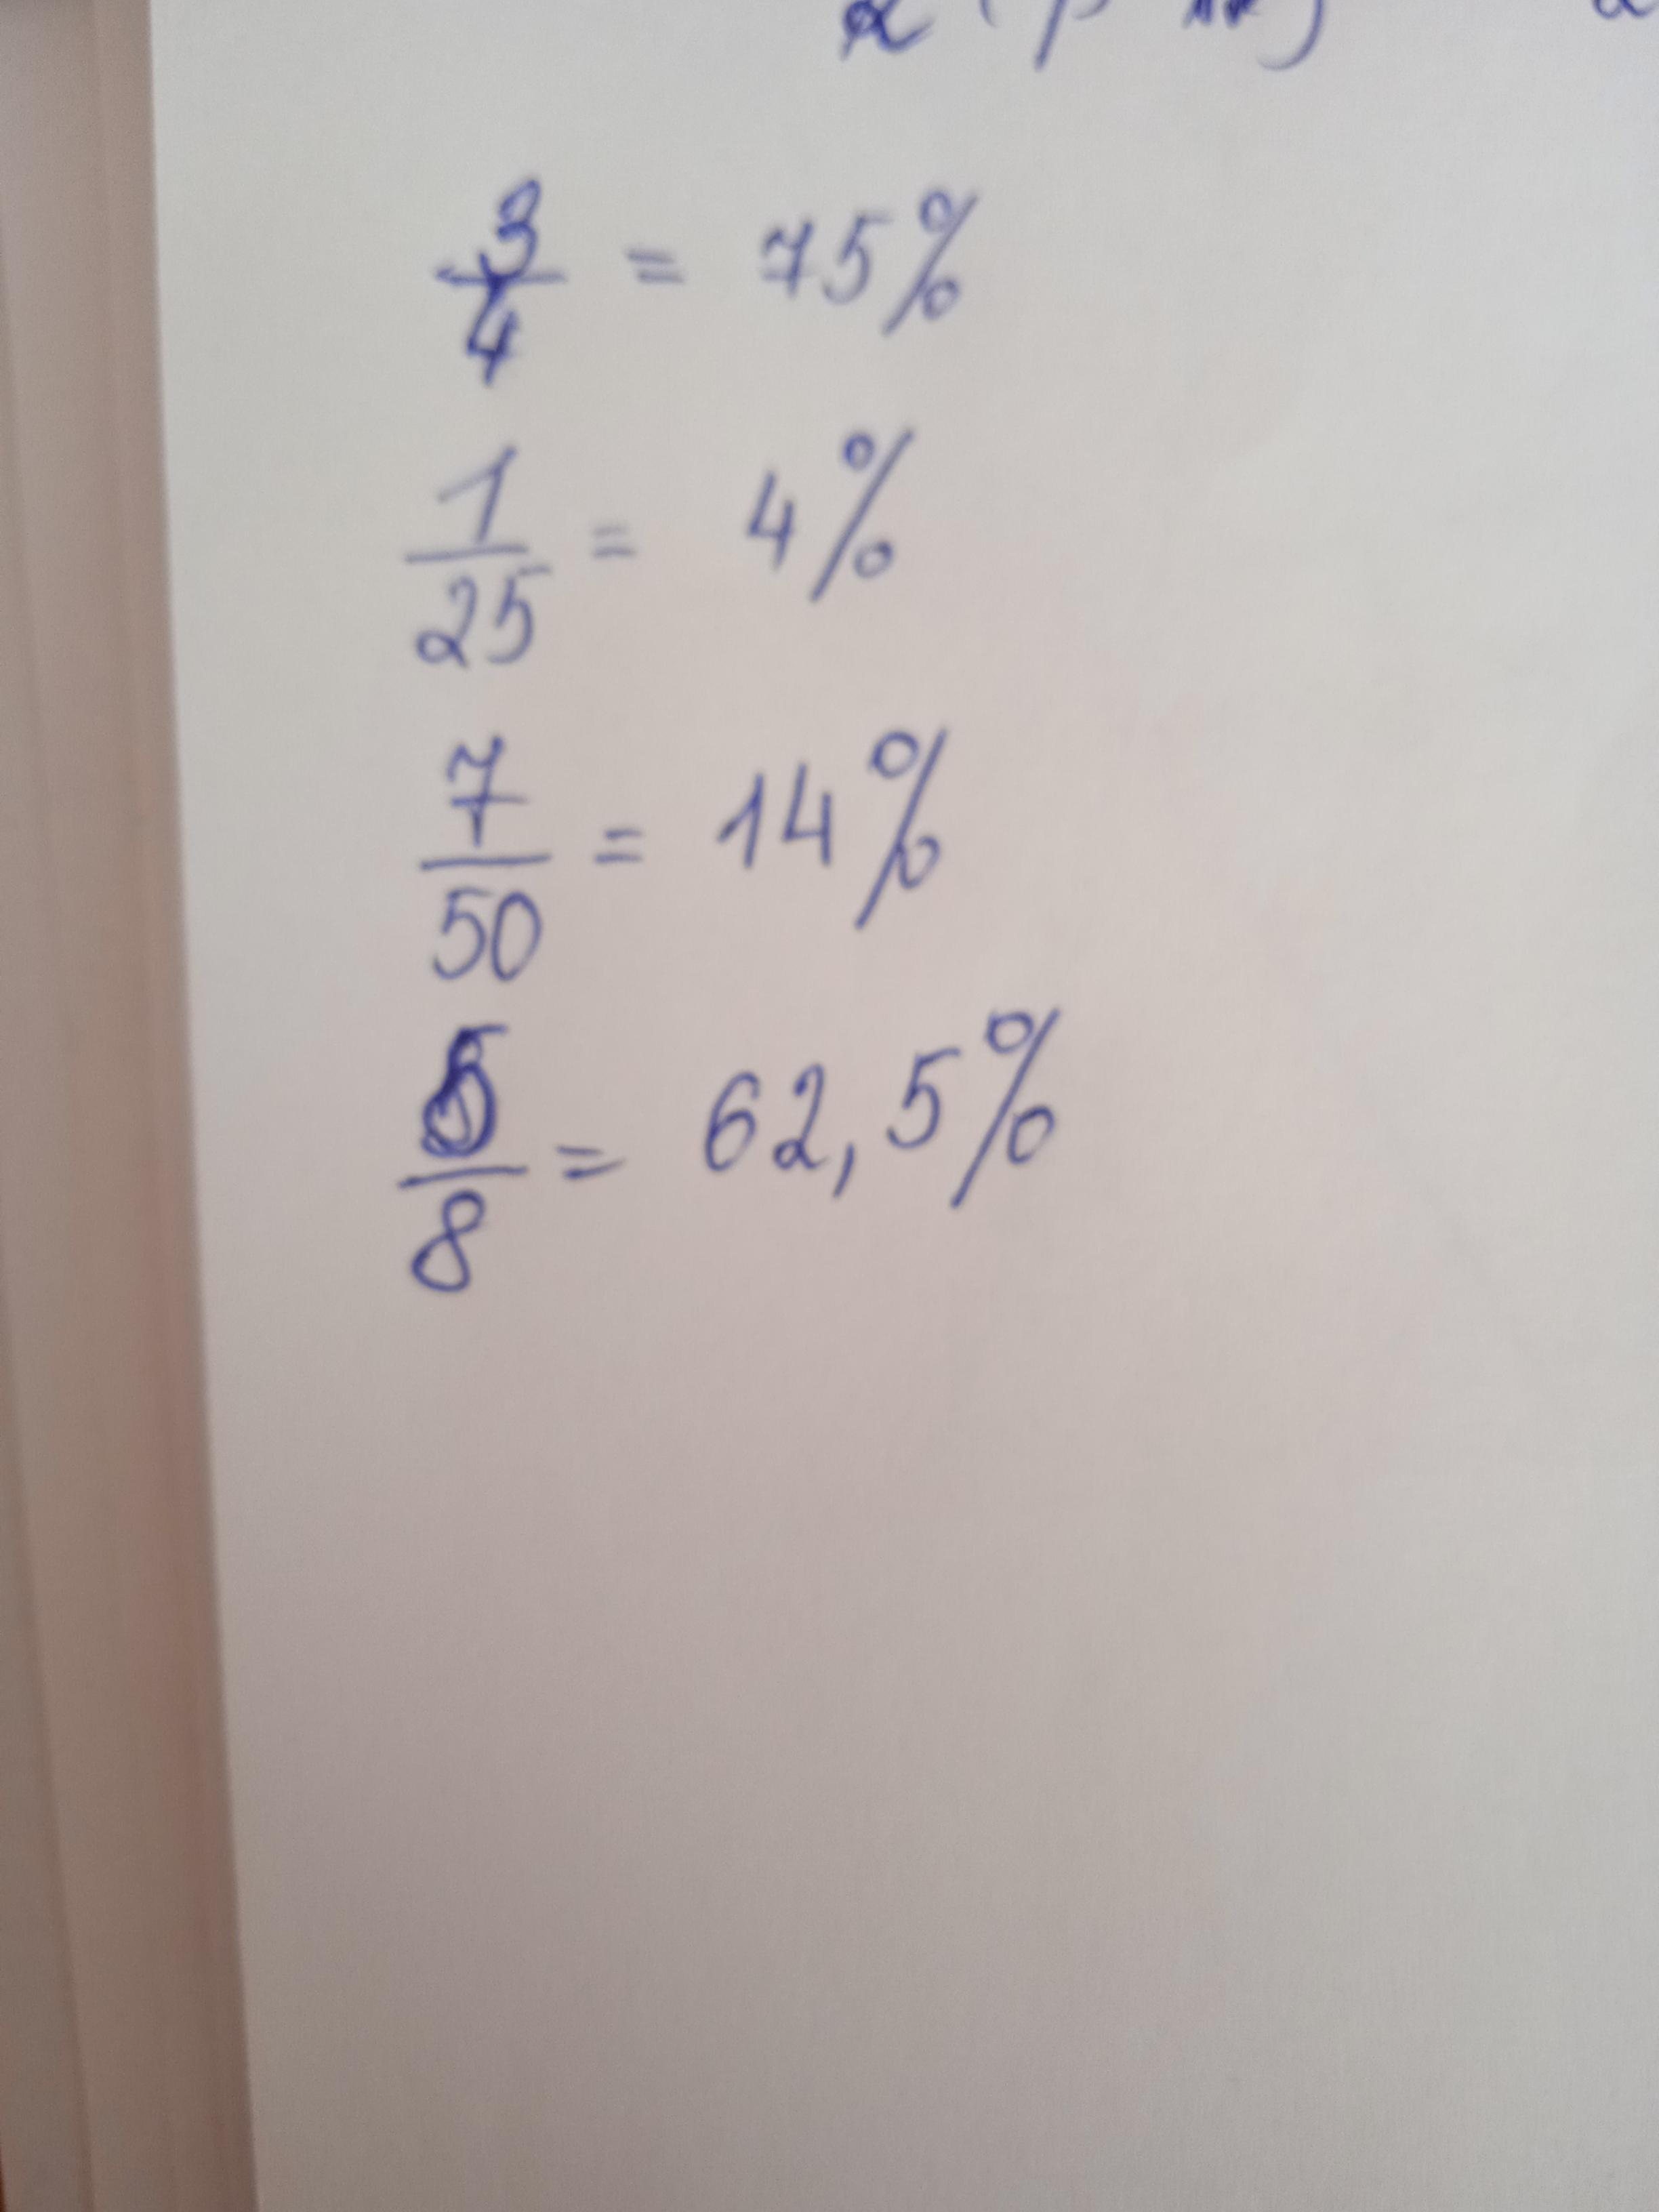 3/4 = 75%
1/25 = 4%
7/50 = 14%
5/8 = 62,5%